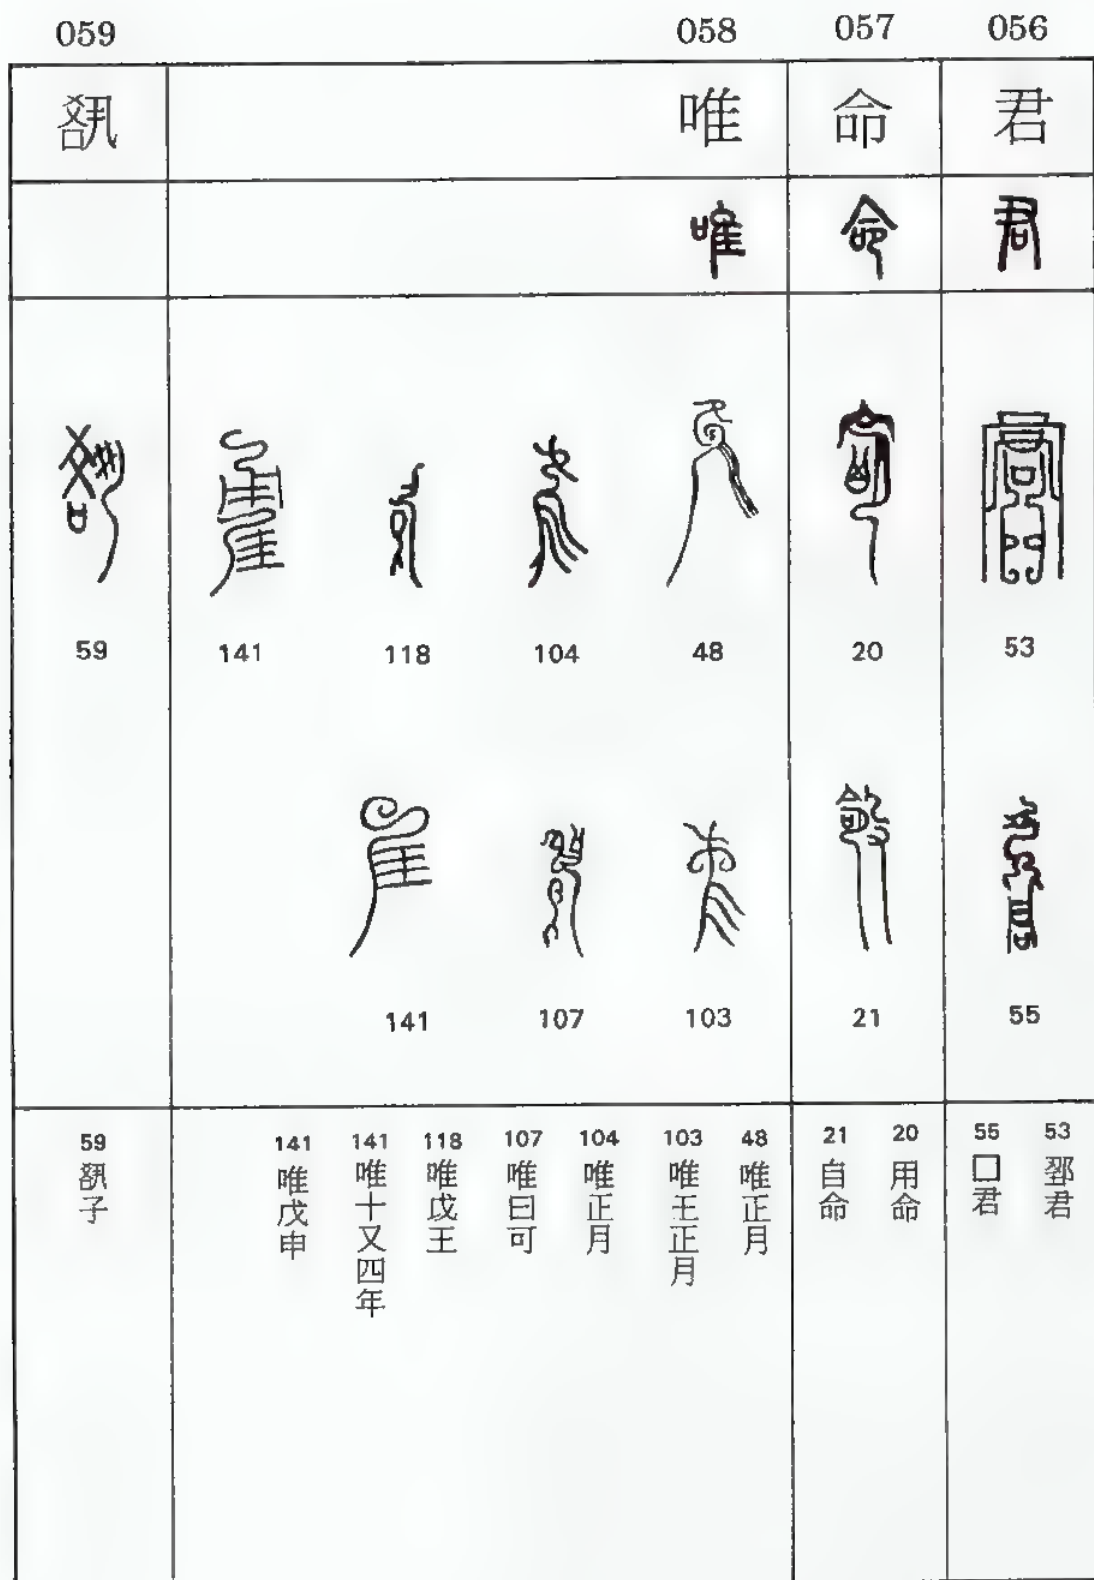 056
君
君
53
55
53 君
55 囗君
057
命
命
20
21
20 用命
21 自命
058
唯
唯
48
103
104
107
118
141
141
48 唯正月
103 唯王正月
104 唯正月
107 唯曰可
118 唯戉王
141 唯十又四年
141 唯戊申
059
59
59 子